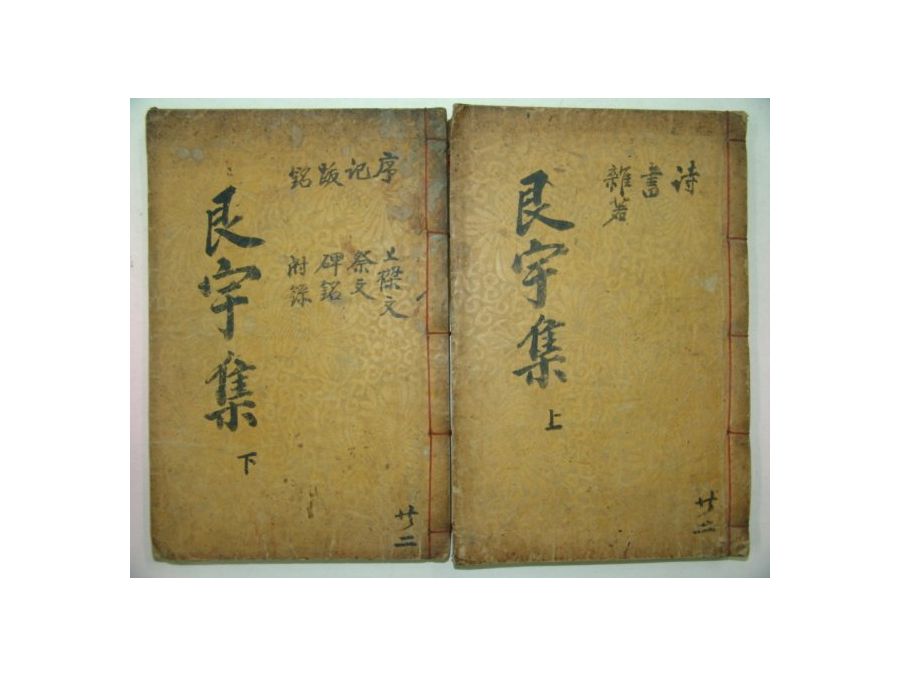 詩
書
雜著
艮宇集
上
共二
序
記
跋
銘
上樑文
祭文
碑銘
附錄
艮宇集
下
共二